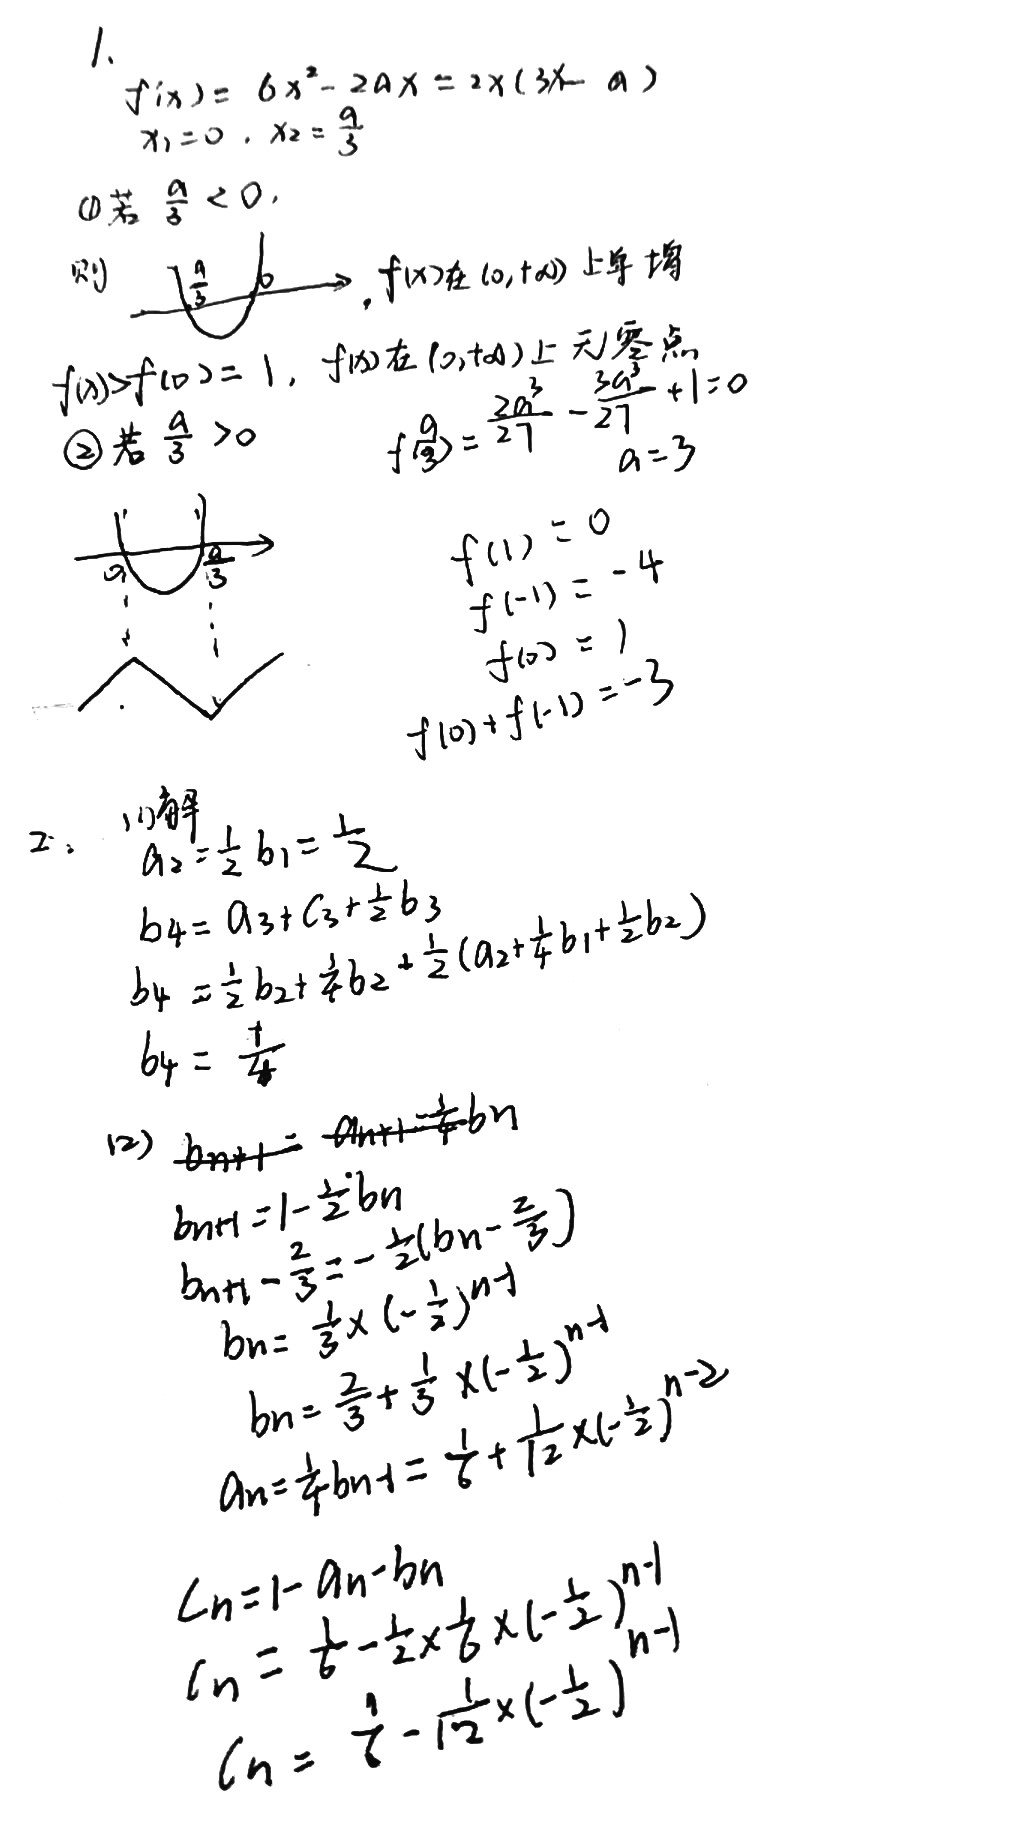 1.
f'(x) = 6x² - 2ax = 2x(3x - a)
x₁=0 , x₂ = a/3
① 若 a/3 < 0,
则 a/3 0 , f(x)在(0,+∞)上单增
f(x)>f(0)=1, f(x)在(0,+∞)上无零点
② 若 a/3 >0
f(a/3) = 2a³/27 - 3a³/27 +1=0
a=3
0 a/3
f(1) = 0
f(-1) = -4
f(0) = 1
f(0)+f(-1) = -3
2. (1)解
a₂ = 1/2 b₁ = 1/2
b₄ = a₃+c₃+1/2 b₃
b₄ = 1/2 b₂ + 1/4 b₂ + 1/2 (a₂ + 1/4 b₁ + 1/2 b₂)
b₄ =
(2) bₙ₊₁ = aₙ₊₁ = 1/4 bn
bₙ₊₁ = 1 - 1/2 bn
bₙ₊₁ - 2/3 = -1/2 (bn - 2/3)
bn = 1/3 × (-1/2)ⁿ⁻¹
bn = 2/3 + 1/3 × (-1/2)ⁿ⁻¹
an = 1/4 bn-1 = 1/6 + 1/12 × (-1/2)ⁿ⁻²
Cn = 1 - an - bn
Cn = 1/6 - 1/2 × 1/6 × (-1/2)ⁿ⁻¹
Cn = 1/6 - 1/12 × (-1/2)ⁿ⁻¹